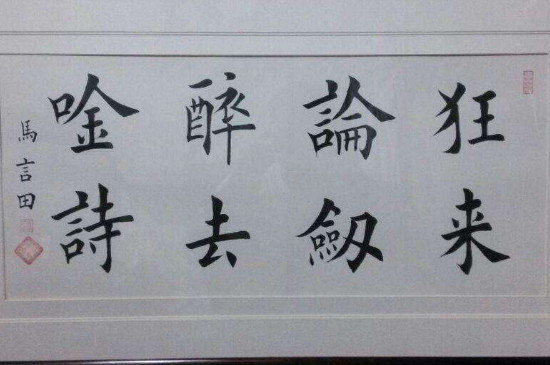 狂来
論劔
醉去
唫詩
馬言田